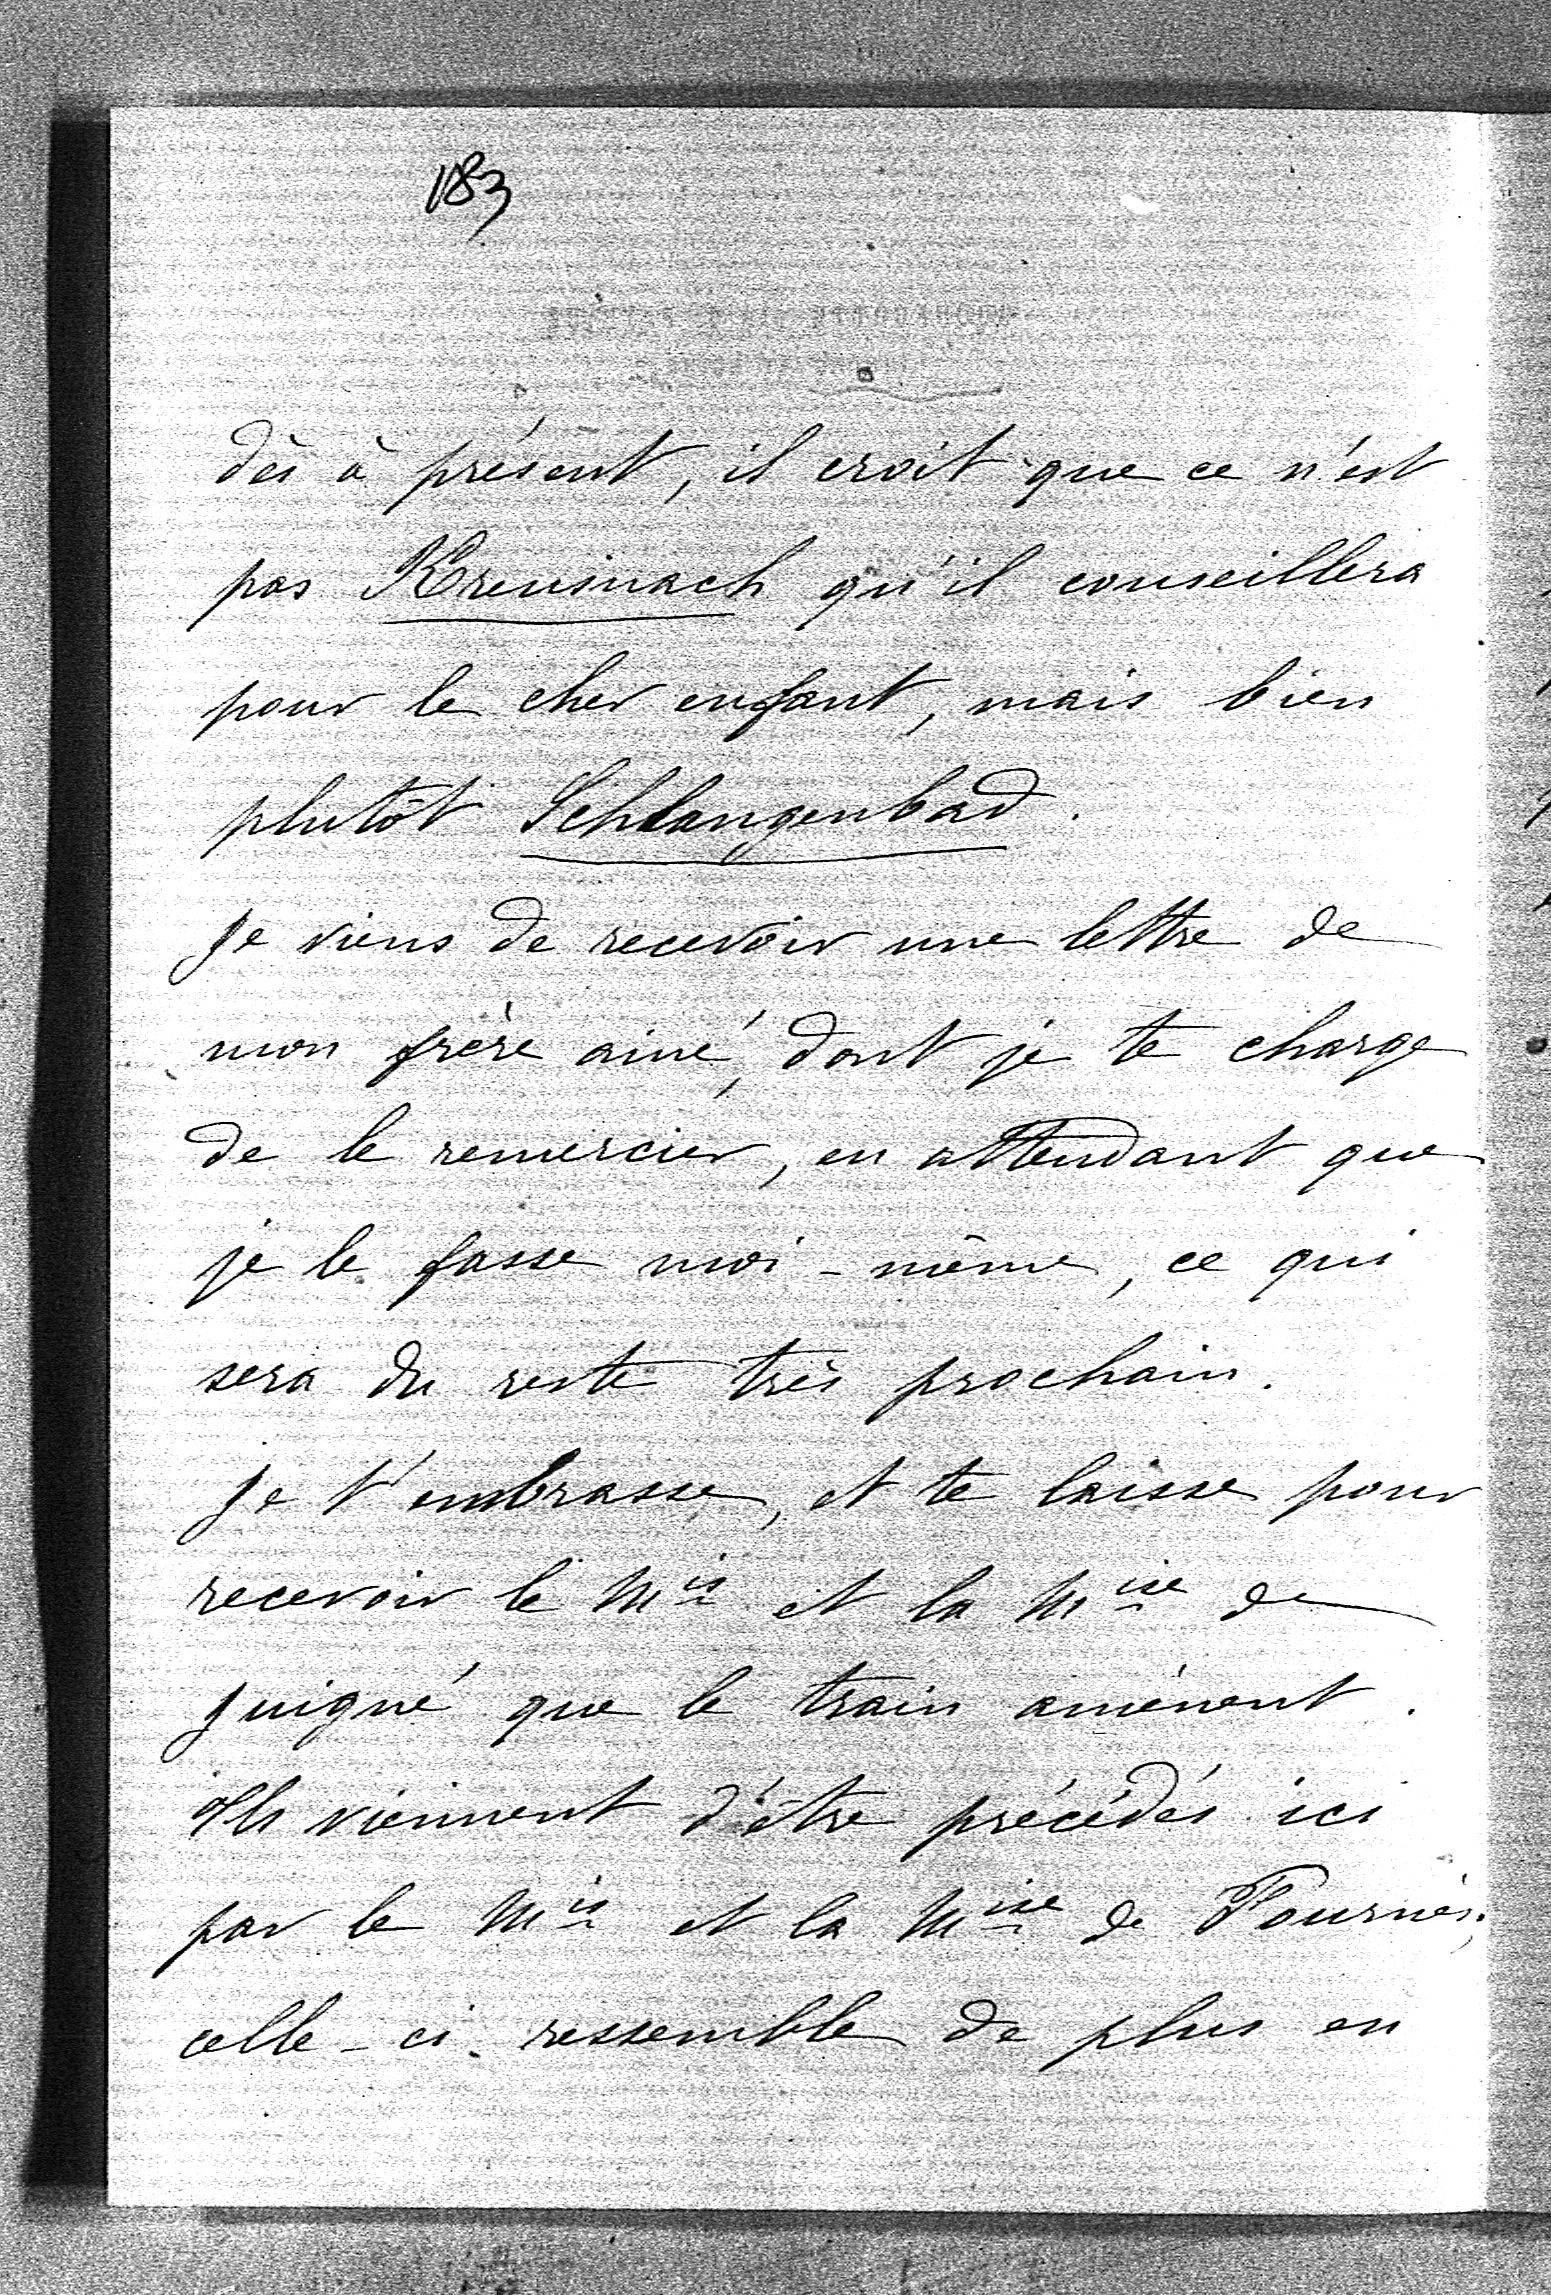 183
dès à présent, il croit que ce n'est
pas Kreusnach qu'il conseillera
pour le cher enfant, mais bien
plutôt Schlangenbad.
Je viens de recevoir une lettre de
mon frère ainé, dont je te charge
de le remercier, en attendant que
je le fasse moi-même, ce qui
sera du reste très prochain.
Je t'embrasse, et te laisse pour
recevoir le Mis et la Mise de
Juigné que le train amènent.
Ils viennent d'être précédés ici
par le Mis et la Mise de Fournès;
celle-ci ressemble de plus en